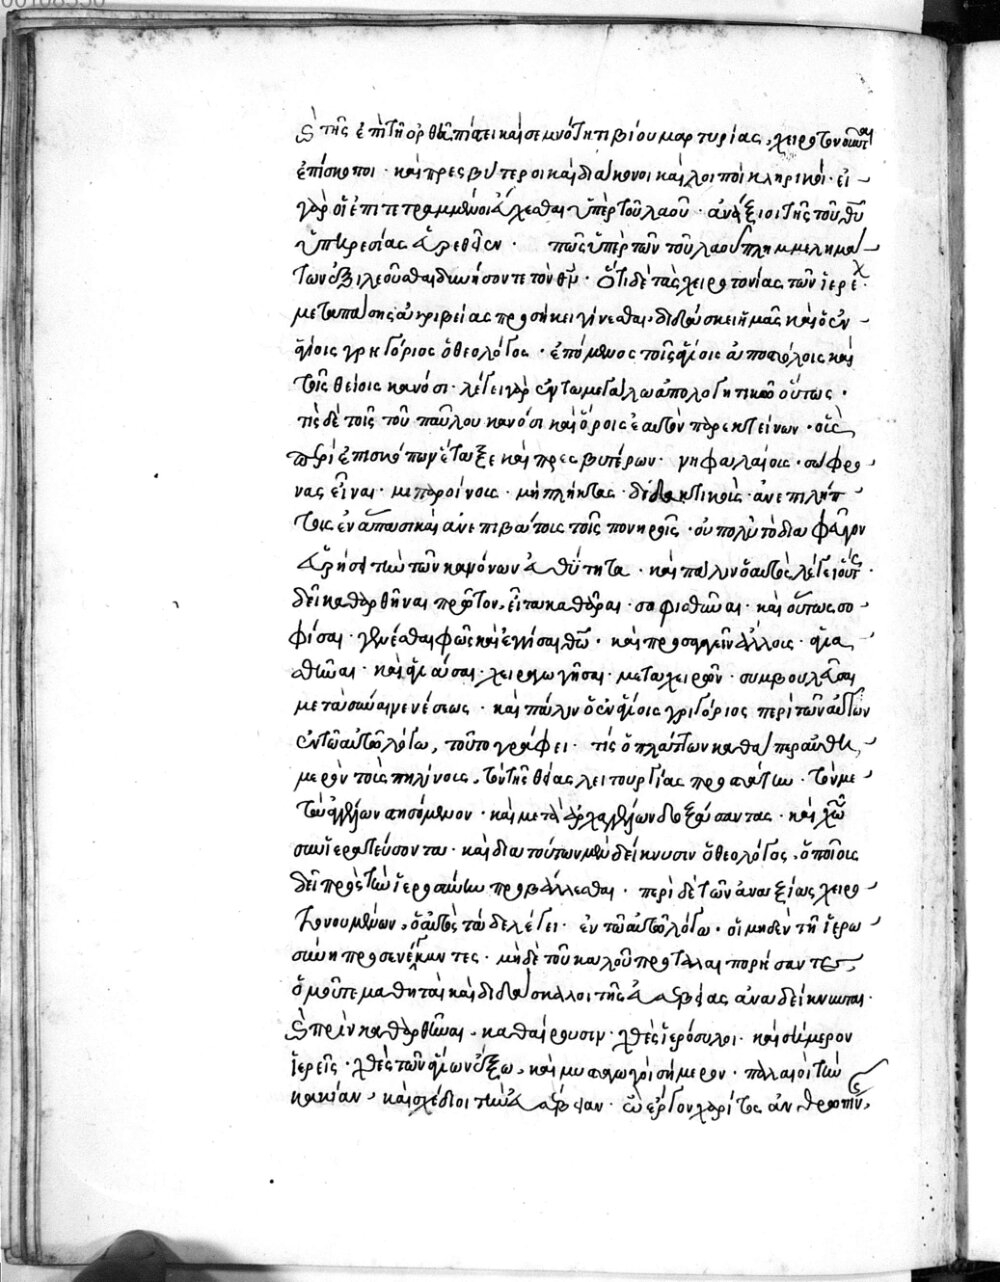 καὶ τῆς ἐπὶ τῇ ὀρθῇ πίστει καὶ σεμνότητι βίου μαρτυρίας, χειροτονοῦνται
ἐπίσκοποι· καὶ πρεσβύτεροι καὶ διάκονοι καὶ λοιποὶ κληρικοί· εἰ
γὰρ οἱ ἐπιτετραμμένοι εὔχεσθαι ὑπὲρ τοῦ λαοῦ· ἀνάξιοι τῆς τοῦ θυ
ὑπηρεσίας εὑρεθῶσιν· πῶς ὑπὲρ τῶν τοῦ λαοῦ πλημμελημά
των ἐξιλεοῦσθαι δυνήσονται τὸν θν· ὅτι δὲ τὰς χειροτονίας τῶν ἱερέ
μετὰ πάσης ἀκριβείας προσήκει γίνεσθαι, διδάσκει ἡμᾶς καὶ ὁ ἐν
ἁγίοις γρηγόριος ὁ θεολόγος· ἑπόμενος τοῖς ἁγίοις ἀποστόλοις καὶ
τοῖς θείοις κανόσι· λέγει γὰρ ἐν τῷ μεγάλω ἀπολογητικῶ οὕτως·
τίς δὲ τοῖς τοῦ παύλου κανόσι καὶ ὅροις ἑαυτὸν παρεκτείνων· οὓς
περὶ ἐπισκόπων ἔταξε καὶ πρεσβυτέρων· νηφαλαίους· σώφρο
νας εἶναι· μὴ παροίνους· μὴ πλήκτας· διδακτικοὺς· ἀνεπιλήπ
τους ἐν ἅπασι καὶ ἀνεπιβάτους τοῖς πονηροῖς· οὐ πολὺ τὸ διαφεῦγον
εὑρήσει τὴν τῶν κανόνων εὐθύτητα· καὶ πάλιν ὁ αὐτὸς λέγει οὕτως·
δεῖ καθαρθῆναι πρῶτον, εἶτα καθᾶραι· σοφισθῆναι· καὶ οὕτως σο
φίσαι· γενέσθαι φῶς καὶ ἐγγίσαι θῶ· καὶ προσαγαγεῖν ἄλλους· ἁγια
σθῆναι· καὶ ἁγιάσαι· χειραγωγῆσαι· μετὰ χειρῶν· συμβουλεῦσαι
μετὰ συνέσεως· καὶ πάλιν ὁ ἐν ἁγίοις γριγόριος περὶ τῶν αὐτῶν
ἐν τῶ αὐτῶ λόγω, τοῦτο γράφει· τίς ὁ πλάττων καθάπερ αὐθη
μερὸν τοὺς πηλίνους, τὸν τῆς θείας λειτουργίας προστάτην· τὸν με
τὰ ἀγγέλων στησόμενον· καὶ μετὰ ἀρχαγγέλων δοξάσαντας· καὶ χῶ
συνιερατεύσοντα· καὶ διὰ τούτων μὲν δείκνυσιν ὁ θεολόγος, ὁποίους
δεῖ πρὸς τὴν ἱεροσύνην προβάλλεσθαι· περὶ δὲ τῶν ἀναξίως χειρο
τονουμένων, ὁ αὐτὸς τάδε λέγει· ἐν τῶ αὐτῶ λόγω· οἱ μηδὲν τῇ ἱερω
σύνη προσενέγκαντες· μηδὲ τοῦ καλοῦ προταλαιπορήσαντες,
ὁμοῦ τε μαθηταὶ καὶ διδάσκαλοι τῆς εὐσεβείας ἀναδείκνυνται·
καὶ πρὶν καθαρθῆναι, καθαίρουσιν· χθὲς ἱερόσυλοι· καὶ σήμερον
ἱερεῖς· χθὲς τῶν ἁγίων ἔξω, καὶ μυσταγωγοὶ σήμερον· παλαιοὶ τὴν
κακίαν, καὶ σχέδιοι τὴν εὐσέβειαν· ὧν ἔργον χάριτος ἀνθρωπίνης,